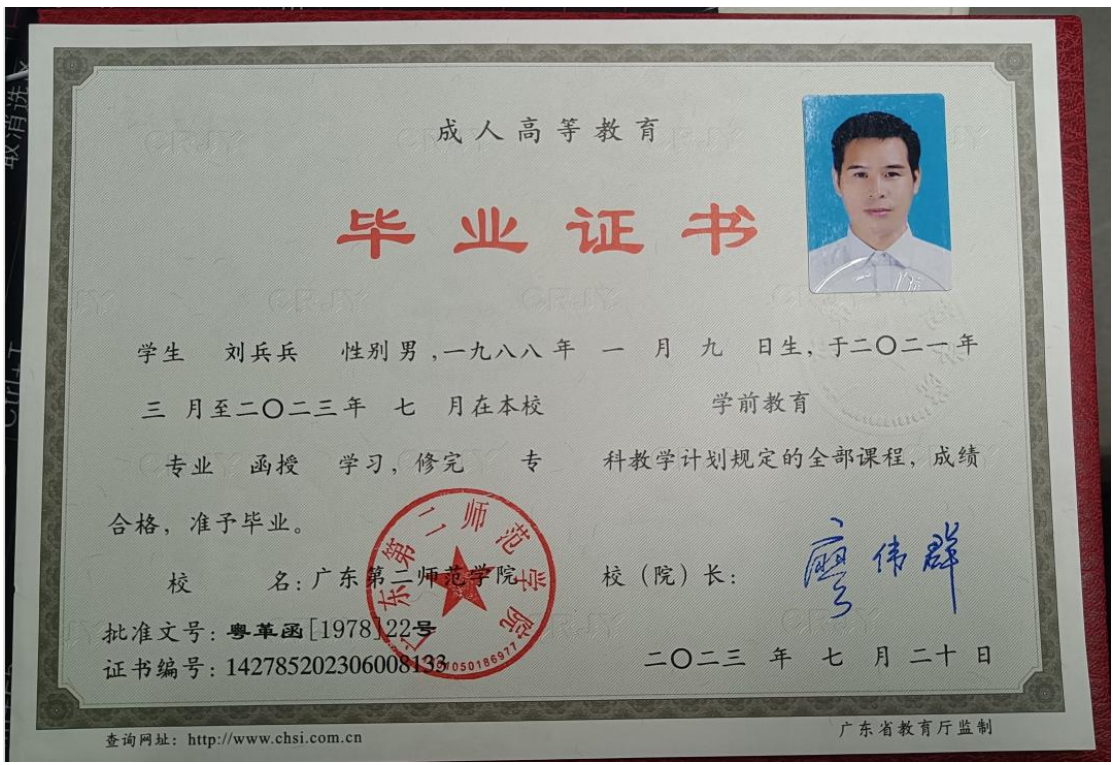 成人高等教育
毕业证书
学生 刘兵兵 性别 男 ,一九八八 年 一 月 九 日生, 于二〇二一 年
三 月至二〇二三 年 七 月在本校 学前教育
专业 函授 学习, 修完 专 科教学计划规定的全部课程, 成绩
合格, 准予毕业。
校 名: 广东第二师范学院 校（院）长: 廖伟群
广东第二师范学院
批准文号: 粤革函[1978]22号
证书编号: 142785202306008133
二〇二三 年 七 月 二十 日
查询网址: http://www.chsi.com.cn
广东省教育厅监制
CRJY
取消选
Ctrl+T